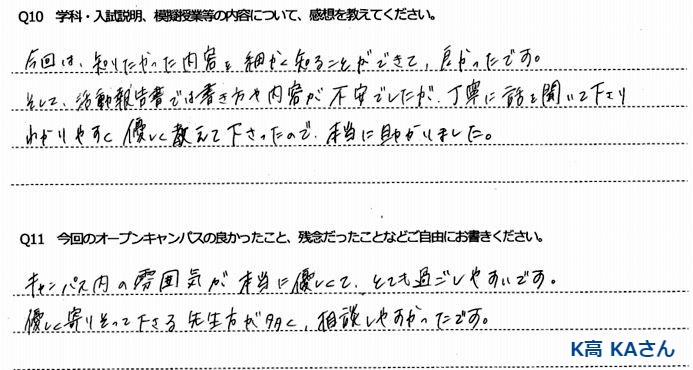 Q10 学科・入試説明、模擬授業等の内容について、感想を教えてください。
今回は、知りたかった内容を細かく知ることができて、良かったです。
そして、活動報告書では書き方や内容が不安でしたが、丁寧に話を聞いて下さり
わかりやすく優しく教えて下さったので、本当に助かりました。
Q11 今回のオープンキャンパスの良かったこと、残念だったことなどご自由にお書きください。
キャンパス内の雰囲気が本当に優しくて、とても過ごしやすいです。
優しく寄りそって下さる先生方が多く、相談しやすかったです。
K高 KAさん